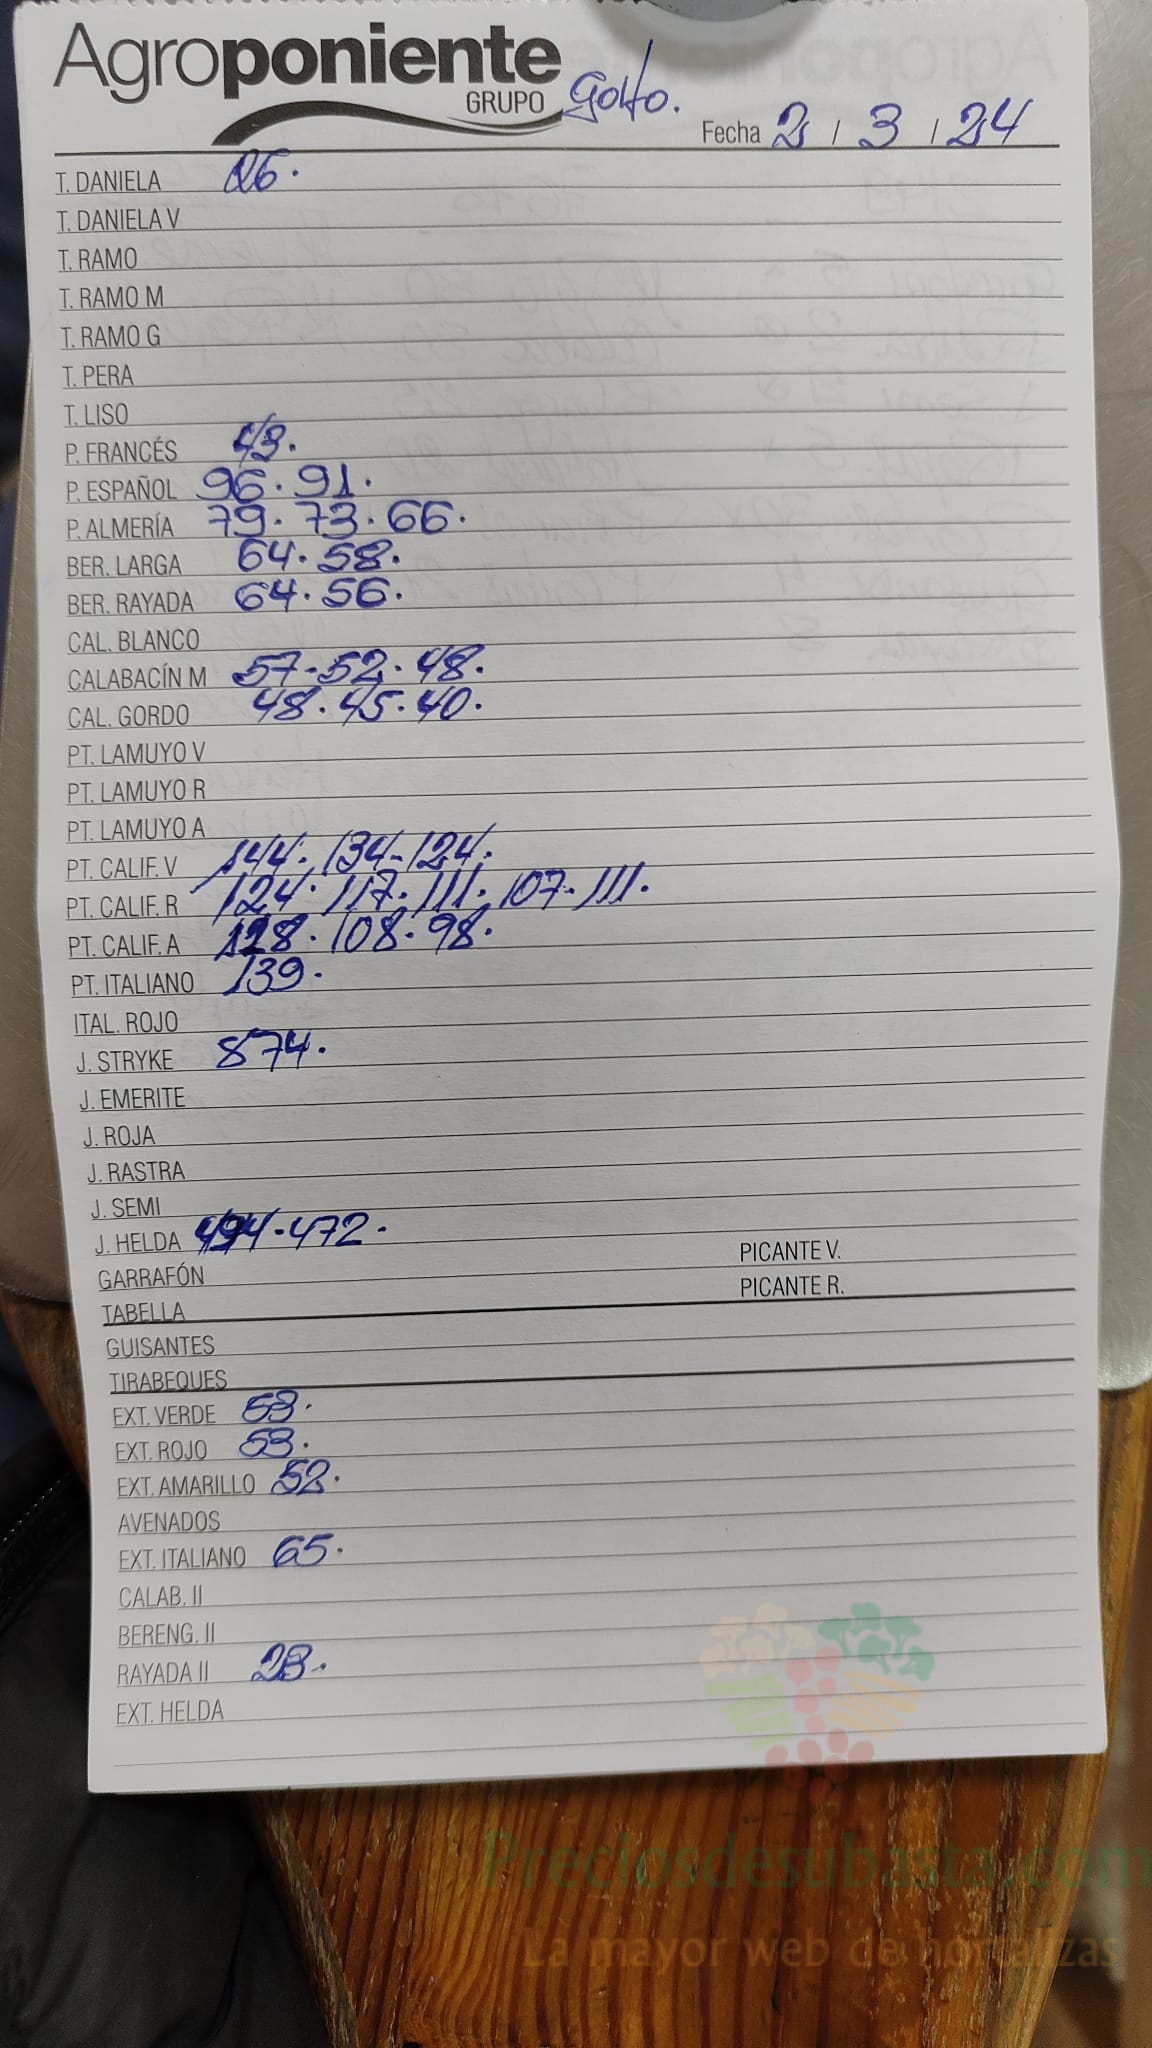 Agroponiente
GRUPO
Golfo.
Fecha 2 / 3 / 24
T. DANIELA 26.
T. DANIELA V
T. RAMO
T. RAMO M
T. RAMO G
T. PERA
T. LISO
P. FRANCÉS 43.
P. ESPAÑOL 96. 91.
P. ALMERÍA 79. 73. 66.
BER. LARGA 64. 58.
BER. RAYADA 64. 56.
CAL. BLANCO
CALABACÍN M 57-52. 48.
CAL. GORDO 48. 45. 40.
PT. LAMUYO V
PT. LAMUYO R
PT. LAMUYO A
PT. CALIF. V 144. 134-124.
PT. CALIF. R 124. 117. 111. 107. 111.
PT. CALIF. A 128. 108. 98.
PT. ITALIANO 139.
ITAL. ROJO
J. STRYKE 874.
J. EMERITE
J. ROJA
J. RASTRA
J. SEMI
J. HELDA 494-472.
PICANTE V.
GARRAFÓN
PICANTE R.
TABELLA
GUISANTES
TIRABEQUES
EXT. VERDE 53.
EXT. ROJO 53.
EXT. AMARILLO 52.
AVENADOS
EXT. ITALIANO 65.
CALAB. II
BERENG. II
RAYADA II 23.
EXT. HELDA
Preciosdesubasta.com
La mayor web de hortalizas